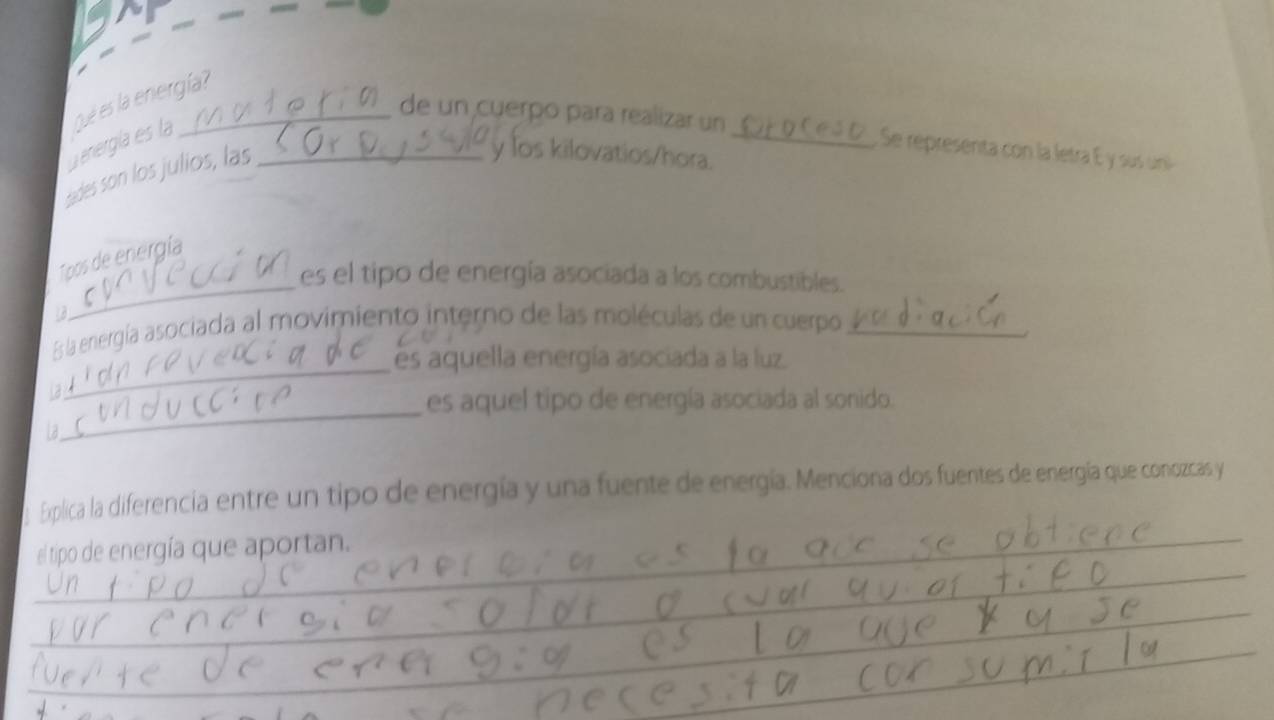 ¿Qué es la energía?
La energía es la materia de un cuerpo para realizar un proceso. Se representa con la letra E y sus uni-
dades son los julios, las y los kilovatios/hora.
Tipos de energía
La convección es el tipo de energía asociada a los combustibles.
Es la energía asociada al movimiento interno de las moléculas de un cuerpo radiación.
La es aquella energía asociada a la luz.
La es aquel tipo de energía asociada al sonido.
Explica la diferencia entre un tipo de energía y una fuente de energía. Menciona dos fuentes de energía que conozcas y
el tipo de energía que aportan.
Un tipo de energia es la se obtiene
por energia solar o cual tipo
fuente de energia es la que ya se
necesita consumir la